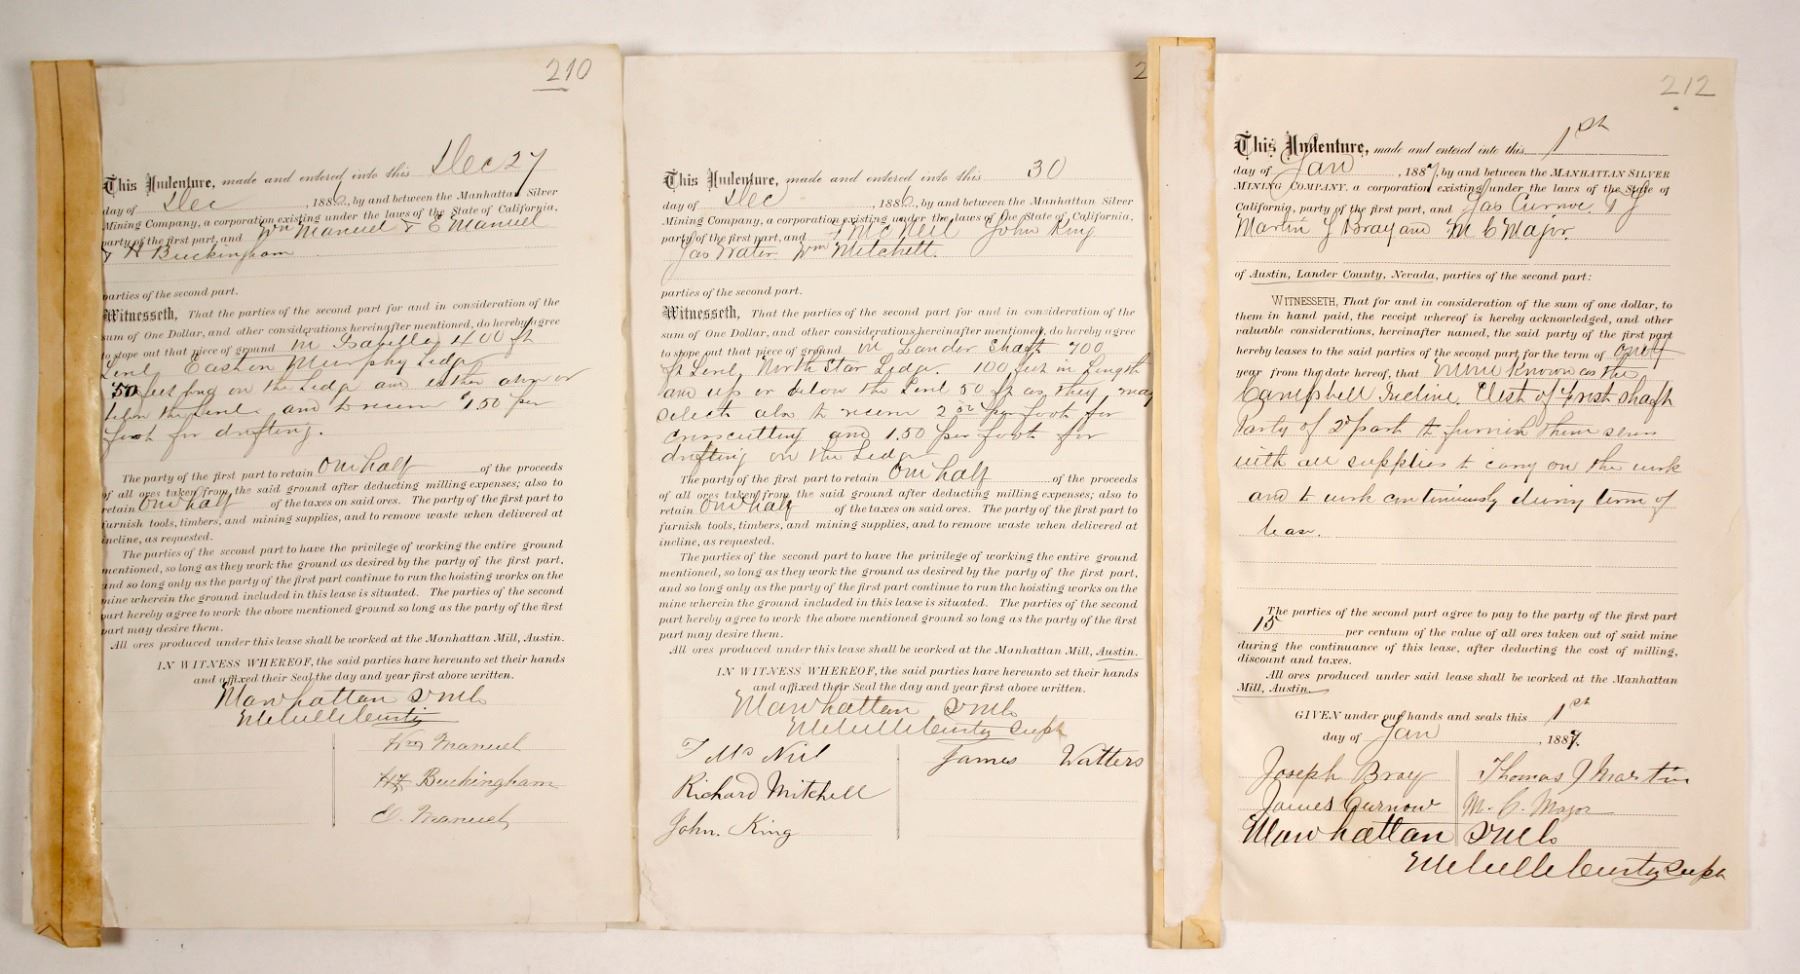 210
This Indenture, made and entered into this Dec 27
day of Dec, 1886, by and between the Manhattan Silver
Mining Company, a corporation existing under the laws of the State of California,
party of the first part, and Wm Manuel & E Manuel
& H Buckingham
parties of the second part.
Witnesseth, That the parties of the second part for and in consideration of the
sum of One Dollar, and other considerations hereinafter mentioned, do hereby agree
to stope out that piece of ground in Isabella 400 ft
Level East on Murphy Ledge
50 feet long on the Ledge and either above or
below the Level and to receive $1.50 per
foot for drifting.
The party of the first part to retain One half of the proceeds
of all ores taken from the said ground after deducting milling expenses; also to
retain One half of the taxes on said ores. The party of the first part to
furnish tools, timbers, and mining supplies, and to remove waste when delivered at
incline, as requested.
The parties of the second part to have the privilege of working the entire ground
mentioned, so long as they work the ground as desired by the party of the first part,
and so long only as the party of the first part continue to run the hoisting works on the
mine wherein the ground included in this lease is situated. The parties of the second
part hereby agree to work the above mentioned ground so long as the party of the first
part may desire them.
All ores produced under this lease shall be worked at the Manhattan Mill, Austin.
IN WITNESS WHEREOF, the said parties have hereunto set their hands
and affixed their Seal the day and year first above written.
Manhattan S M Co
Melville Curtis
Wm Manuel
H Buckingham
E. Manuel
2
This Indenture, made and entered into this 30
day of Dec, 1886, by and between the Manhattan Silver
Mining Company, a corporation existing under the laws of the State of California,
party of the first part, and T McNeil John King
Jas Water Wm Mitchell.
parties of the second part.
Witnesseth, That the parties of the second part for and in consideration of the
sum of One Dollar, and other considerations hereinafter mentioned, do hereby agree
to stope out that piece of ground in Lander Shaft 700
ft Level North Star Ledge. 100 feet in Length
and up or below the Level 50 ft as they may
select also to receive 2.50 per foot for
crosscutting and 1.50 per foot for
drifting on the Ledge
The party of the first part to retain One half of the proceeds
of all ores taken from the said ground after deducting milling expenses; also to
retain One half of the taxes on said ores. The party of the first part to
furnish tools, timbers, and mining supplies, and to remove waste when delivered at
incline, as requested.
The parties of the second part to have the privilege of working the entire ground
mentioned, so long as they work the ground as desired by the party of the first part,
and so long only as the party of the first part continue to run the hoisting works on the
mine wherein the ground included in this lease is situated. The parties of the second
part hereby agree to work the above mentioned ground so long as the party of the first
part may desire them.
All ores produced under this lease shall be worked at the Manhattan Mill, Austin.
IN WITNESS WHEREOF, the said parties have hereunto set their hands
and affixed their Seal the day and year first above written.
Manhattan S M Co
Melville Curtis Supt
T Mc Neil
James Watters
Richard Mitchell
John. King
212
This Indenture, made and entered into this 1st
day of Jan, 1887, by and between the MANHATTAN SILVER
MINING COMPANY, a corporation existing under the laws of the State of
California, party of the first part, and Jas Curnow T J
Martin J Bray and M C Major.
of Austin, Lander County, Nevada, parties of the second part:
WITNESSETH, That for and in consideration of the sum of one dollar, to
them in hand paid, the receipt whereof is hereby acknowledged, and other
valuable considerations, hereinafter named, the said party of the first part
hereby leases to the said parties of the second part for the term of one
year from the date hereof, that mine known as the
Campbell Incline West of Frost Shaft
Party of 2d part to furnish themselves
with all supplies to carry on the work
and to work continuously during term of
lease.
The parties of the second part agree to pay to the party of the first part
15 per centum of the value of all ores taken out of said mine
during the continuance of this lease, after deducting the cost of milling,
discount and taxes.
All ores produced under said lease shall be worked at the Manhattan
Mill, Austin.
GIVEN under our hands and seals this 1st
day of Jan, 1887.
Joseph Bray
Thomas J Martin
James Curnow
M. C. Major
Manhattan S M Co
Melville Curtis Supt